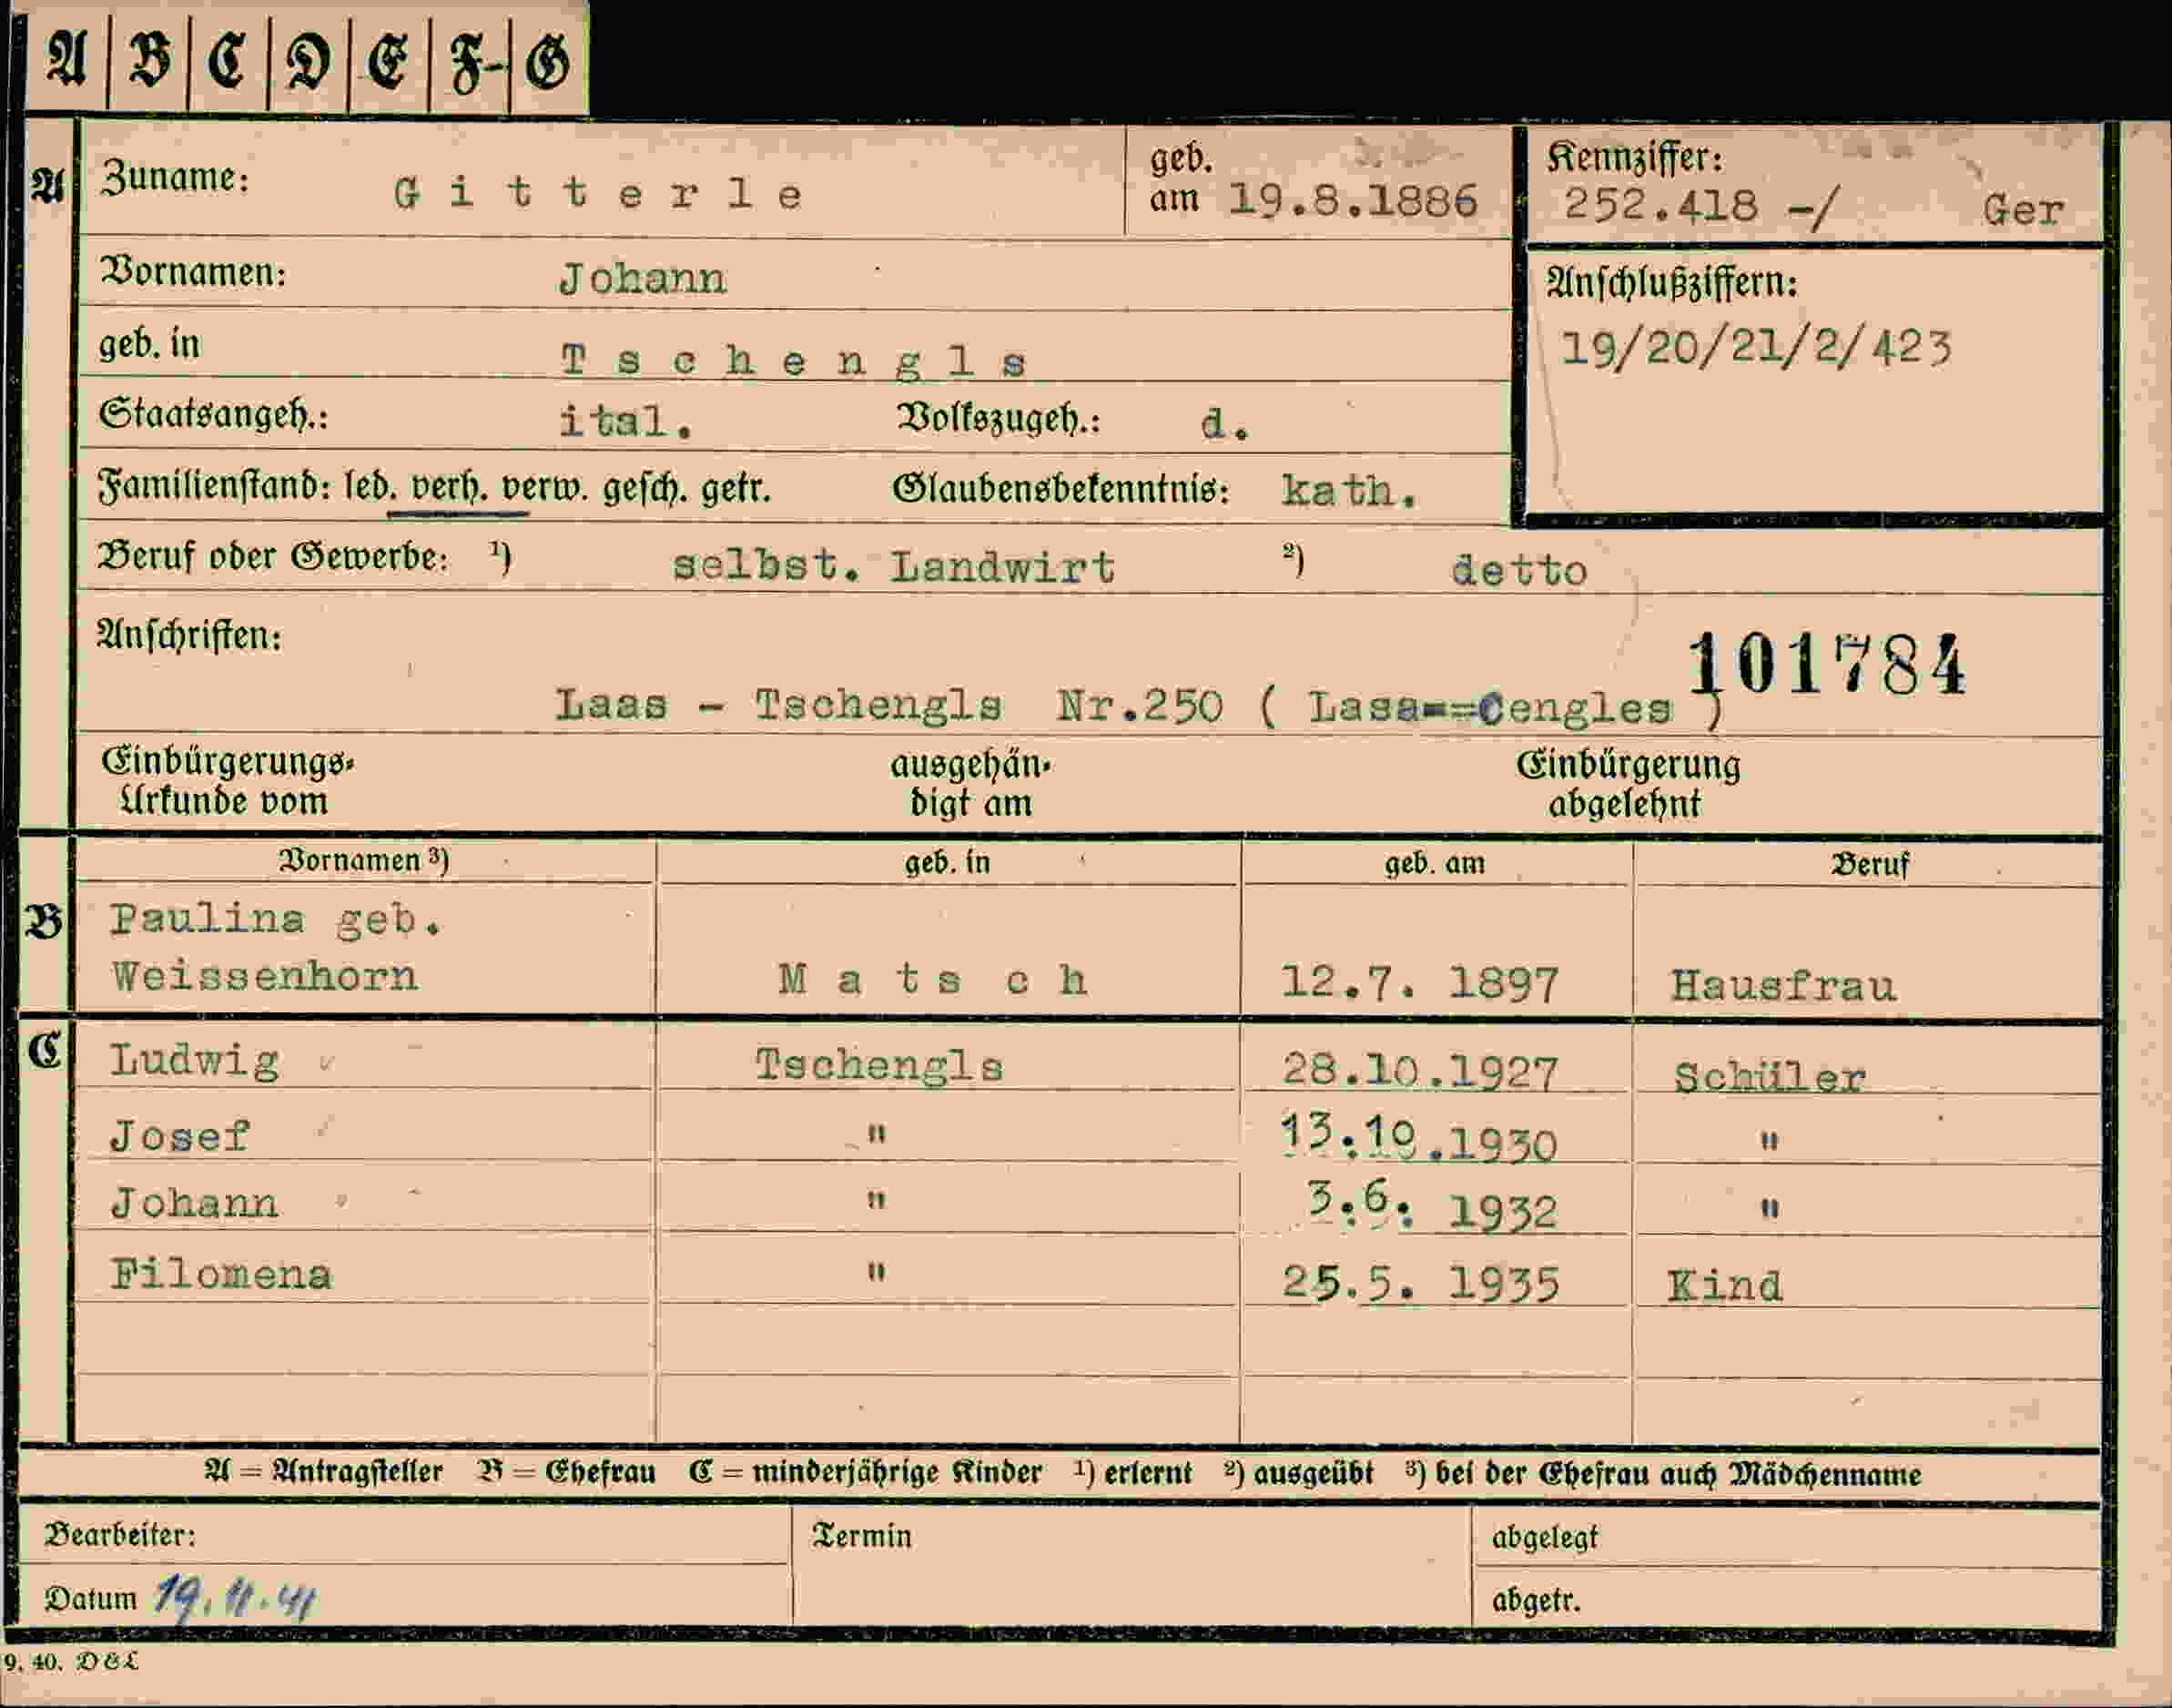 A B C D E F- G
A Zuname: Gitterle geb. am 19.8.1886 Kennziffer: 252.418 -/ Ger
Vornamen: Johann Anschlußziffern:
geb. in Tschengls 19/20/21/2/423
Staatsangeh.: ital. Volkszugeh.: d.
Familienstand: led. verh. verw. gesch. getr. Glaubensbekenntnis: kath.
Beruf oder Gewerbe: ¹) selbst. Landwirt ²) detto
Anschriften: 101784
Laas - Tschengls Nr.250 ( Lasa==Cengles )
Einbürgerungs- ausgehän- Einbürgerung
Urkunde vom digt am abgelehnt
Vornamen ³) geb. in geb. am Beruf
B Paulina geb.
Weissenhorn Matsch 12.7. 1897 Hausfrau
C Ludwig Tschengls 28.10.1927 Schüler
Josef " 13.10.1930 "
Johann " 3.6. 1932 "
Filomena " 25.5. 1935 Kind
A = Antragsteller B = Ehefrau C = minderjährige Kinder ¹) erlernt ²) ausgeübt ³) bei der Ehefrau auch Mädchenname
Bearbeiter: Termin abgelegt
Datum 19.11.41 abgetr.
9. 40. D&L